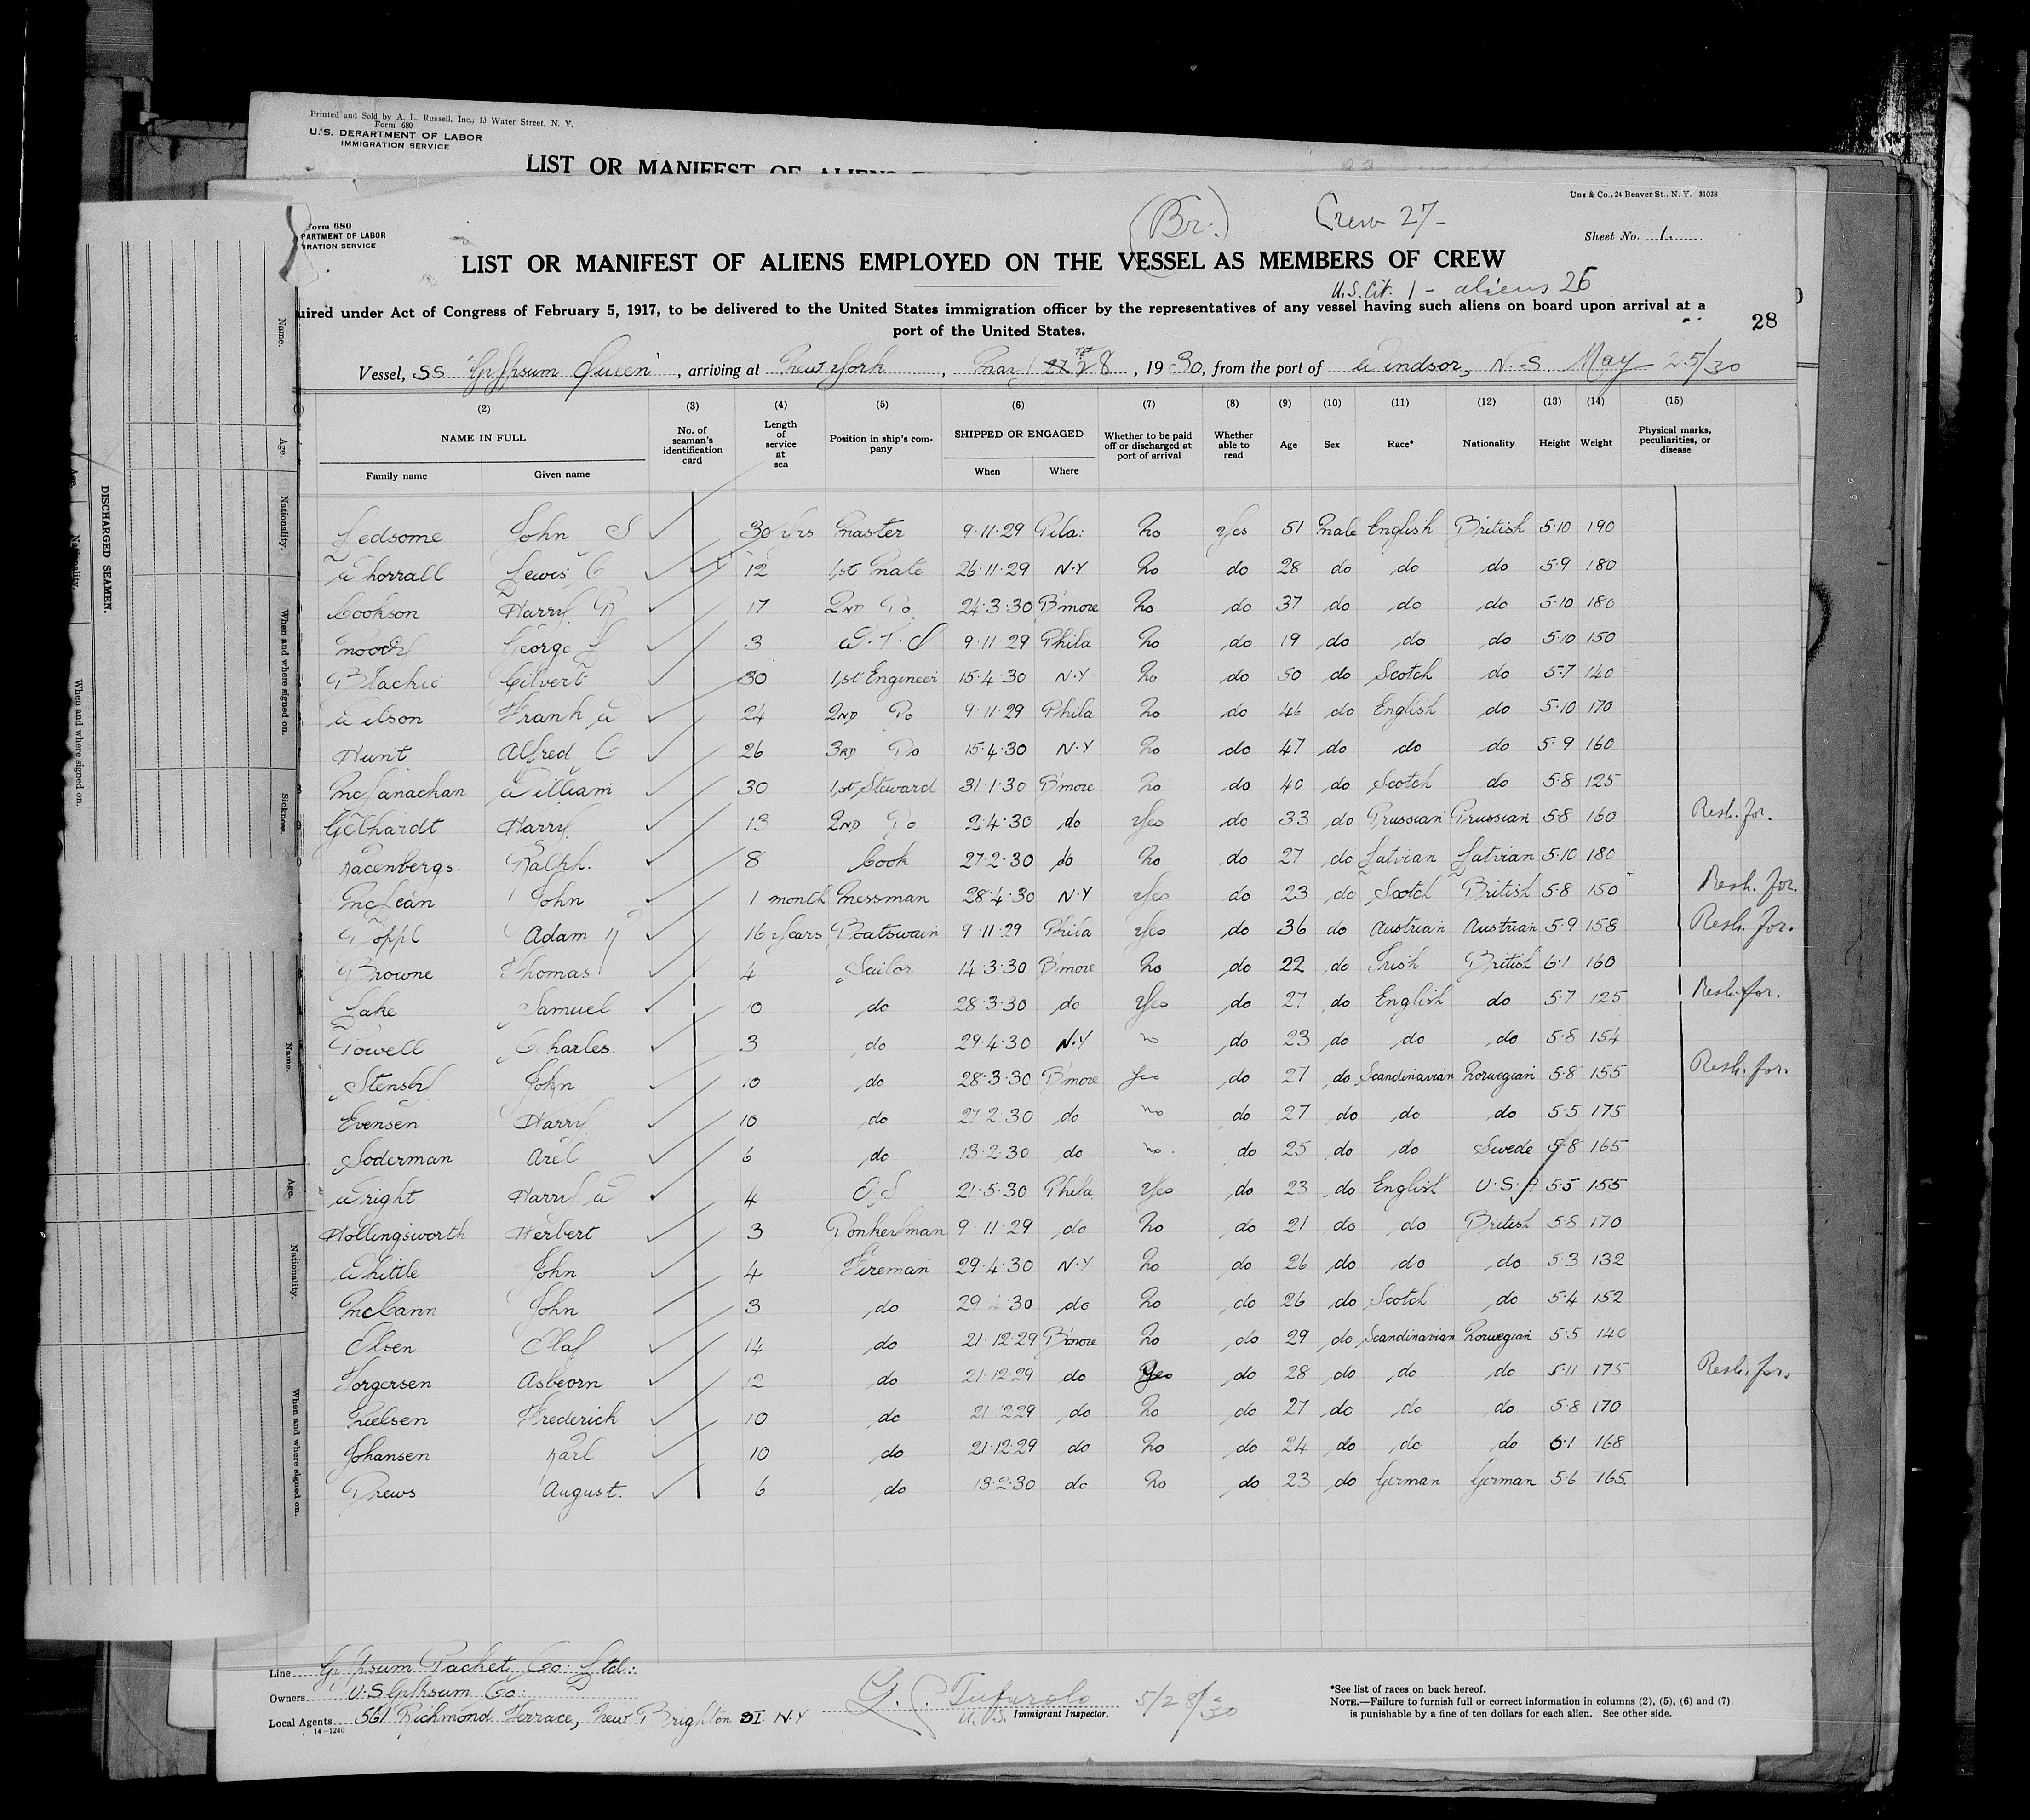 Printed and Sold by A. L. Russell, Inc., 13 Water Street, N. Y.
Form 680
U. S. DEPARTMENT OF LABOR
IMMIGRATION SERVICE
LIST OR MANIFEST OF ALIENS
Uns & Co., 24 Beaver St., N. Y. 31038
(Br.) Crew 27-
Form 680
PARTMENT OF LABOR
GRATION SERVICE
Sheet No. 1.
LIST OR MANIFEST OF ALIENS EMPLOYED ON THE VESSEL AS MEMBERS OF CREW
U.S. Cit. 1 - aliens 26
uired under Act of Congress of February 5, 1917, to be delivered to the United States immigration officer by the representatives of any vessel having such aliens on board upon arrival at a
port of the United States.
28
Vessel, SS "Gypsum Queen", arriving at New York, May 27 28, 1930, from the port of Windsor, N.S. May 25/30
(2) (3) (4) (5) (6) (7) (8) (9) (10) (11) (12) (13) (14) (15)
NAME IN FULL No. of seaman's identification card Length of service at sea Position in ship's company SHIPPED OR ENGAGED Whether to be paid off or discharged at port of arrival Whether able to read Age Sex Race* Nationality Height Weight Physical marks, peculiarities, or disease
Family name Given name When Where
Ledsome John S 30 yrs Master 9.11.29 Pila: No Yes 51 Male English British 5.10 190
Whorrall Lewis C 12 1st Mate 26.11.29 N.Y No do 28 do do do 5.9 180
Cookson Harry R 17 2ND Do 24.3.30 B'more No do 37 do do do 5.10 180
Moody George L 3 W.T.O 9.11.29 Phila No do 19 do do do 5.10 150
Blackie Gilvert 30 1st Engineer 15.4.30 N.Y No do 50 do Scotch do 5.7 140
Wilson Frank W 24 2ND Do 9.11.29 Phila No do 46 do English do 5.10 170
Hunt Alfred C 26 3RD Do 15.4.30 N.Y No do 47 do do do 5.9 160
McLanachan William 30 1st Steward 31.1.30 B'more No do 40 do Scotch do 5.8 125
Gebhardt Harry 13 2ND Do 2.4.30 do Yes do 33 do Prussian Prussian 5.8 160 Resh. for.
Kacenbergs. Ralph. 8 Cook 27.2.30 do No do 27 do Latvian Latvian 5.10 180
McLean John 1 month Messman 28.4.30 N.Y Yes do 23 do Scotch British 5.8 150 Resh. for.
Toppl Adam 16 years Boatswain 9.11.29 Phila Yes do 36 do Austrian Austrian 5.9 158 Resh. for.
Browne Thomas 4 Sailor 14.3.30 B'more No do 22 do Irish British 6.1 160
Lake Samuel 10 do 28.3.30 do Yes do 27 do English do 5.7 125 Resh. for.
Powell Charles. 3 do 29.4.30 N.Y no do 23 do do do 5.8 154
Stensby John 10 do 28.3.30 B'more Yes do 27 do Scandinavian Norwegian 5.8 155 Resh. for.
Evensen Harry 10 do 27.2.30 do no do 27 do do do 5.5 175
Soderman Axel 6 do 13.2.30 do no. do 25 do do Swede 5.8 165
Wright Harry W 4 O.S 21.5.30 Phila Yes do 23 do English U.S.A 5.5 155
Hollingsworth Herbert 3 Donkeyman 9.11.29 do No do 21 do do British 5.8 170
Whittle John 4 Fireman 29.4.30 N.Y No do 26 do do do 5.3 132
McCann John 3 do 29.4.30 do No do 26 do Scotch do 5.4 152
Olsen Olaf 14 do 21.12.29 B'more No do 29 do Scandinavian Norwegian 5.5 140
Torgersen Asbeorn 12 do 21.12.29 do Yes do 28 do do do 5.11 175 Resh. for.
Nielsen Frederick 10 do 21.12.29 do No do 27 do do do 5.8 170
Johansen Karl 10 do 21.12.29 do No do 24 do do do 6.1 168
Drews August. 6 do 13.2.30 do No do 23 do German German 5.6 165.
Line Gypsum Packet Co: Ltd:
Owners U.S Gypsum Co:
Local Agents 561 Richmond Terrace, New Brighton SI. N.Y
14—1240
U.S. Immigrant Inspector. 5/28/30
*See list of races on back hereof.
NOTE.—Failure to furnish full or correct information in columns (2), (5), (6) and (7)
is punishable by a fine of ten dollars for each alien. See other side.
DISCHARGED SEAMEN.
Name.
Age.
Nationality.
When and where signed on.
Sickness.
Name.
Age.
Nationality.
When and where signed on.
Nationality.
When and where signed on.